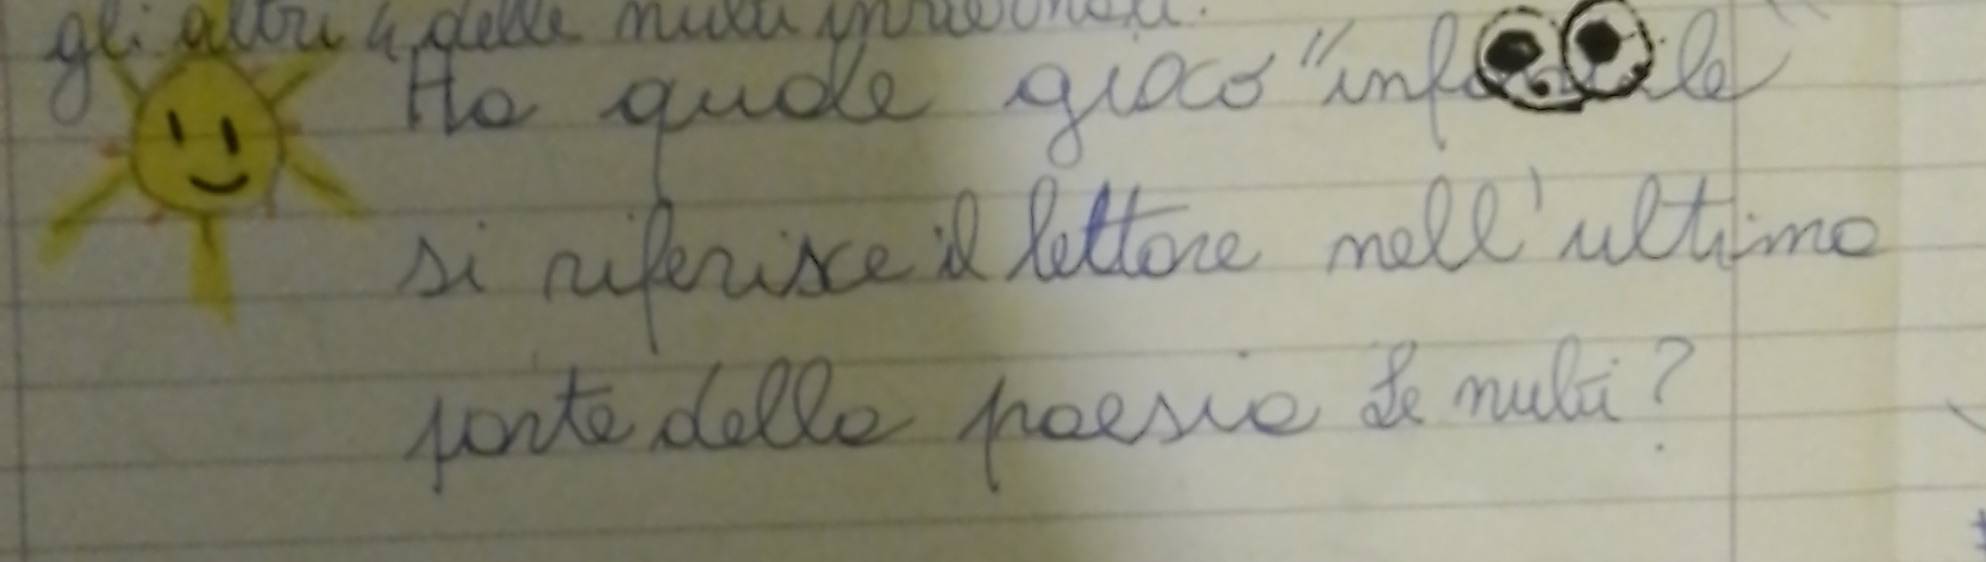 gli altri 4 delle nubi
Ha quale gioco
si riferisce il lettore nell'ultima
parte della poesia Le nubi?